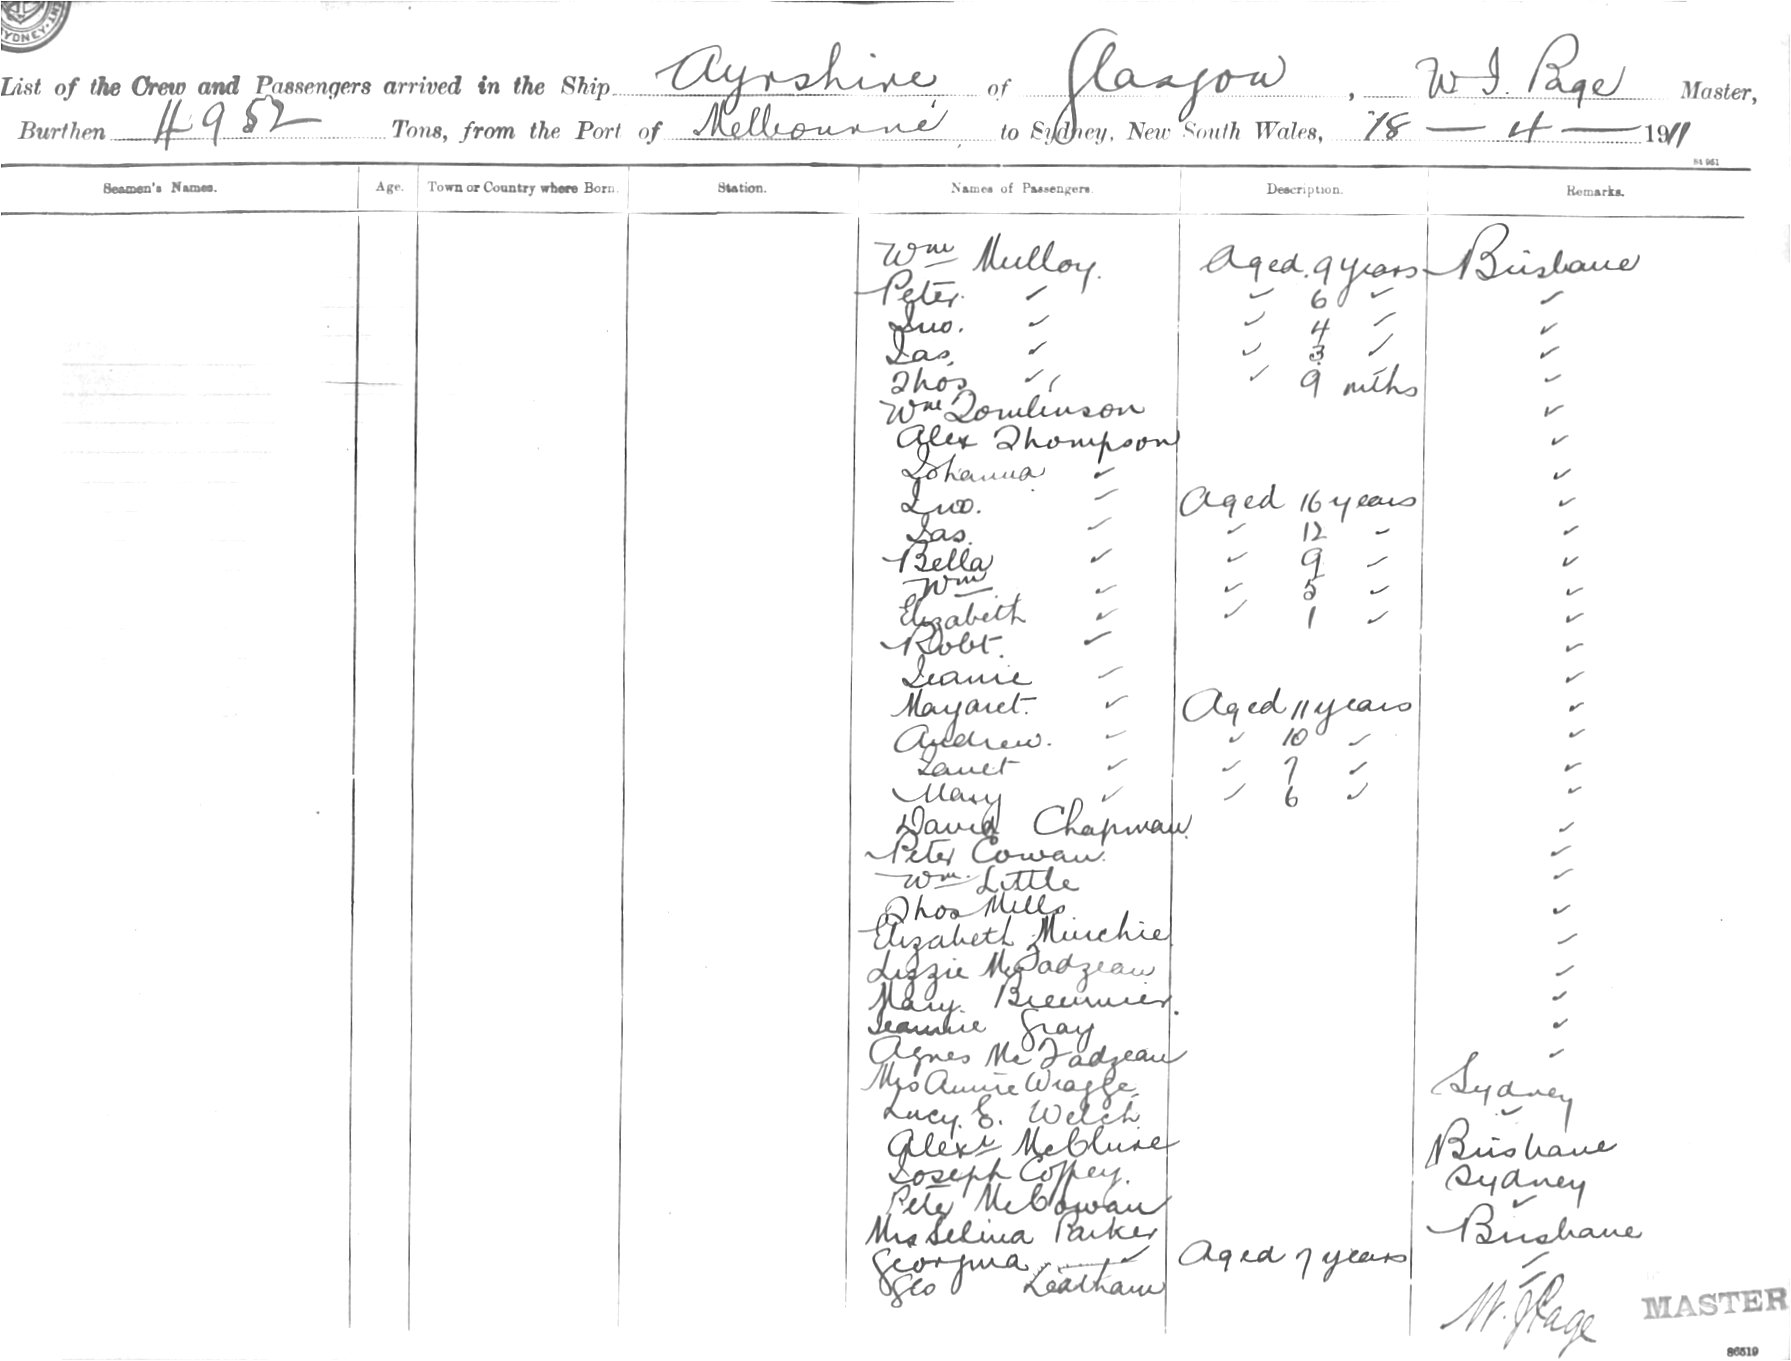 SYDNEY
List of the Crew and Passengers arrived in the Ship Ayrshire of Glasgow, W J. Page Master,
Burthen 4952 Tons, from the Port of Melbourne to Sydney, New South Wales, 18 — 4 — 1911
84 951
Seamen's Names. Age. Town or Country where Born. Station. Names of Passengers. Description. Remarks.
Wm Mulloy. Aged. 9 years Brisbane
Peter. ✓ ✓ 6 ✓ ✓
Jno. ✓ ✓ 4 ✓ ✓
Jas. ✓ ✓ 3 ✓ ✓
Thos ✓ ✓ 9 mths ✓
Wm Tomlinson ✓
Alex Thompson ✓
Johanna ✓ ✓
Jno. ✓ Aged 16 years ✓
Jas. ✓ ✓ 12 ✓ ✓
Bella ✓ ✓ 9 ✓ ✓
Wm ✓ ✓ 5 ✓ ✓
Elizabeth ✓ ✓ 1 ✓ ✓
Robt. ✓ ✓
Jeanie ✓ ✓
Margaret. ✓ Aged 11 years ✓
Andrew. ✓ ✓ 10 ✓ ✓
Janet ✓ ✓ 7 ✓ ✓
Mary ✓ ✓ 6 ✓ ✓
David Chapman ✓
Peter Cowan. ✓
Wm. Little ✓
Thos Mills ✓
Elizabeth Murchie ✓
Lizzie McFadzean ✓
Mary. Bremner. ✓
Jeannie Gray ✓
Agnes McFadzean ✓
Mrs Annie Wragge Sydney
Lucy. E. Welch ✓
Alexr McClure Brisbane
Joseph Coffey. Sydney
Peter McCowan ✓
Mrs Selina Parker Brisbane
Georgina ✓ Aged 7 years ✓
Geo Leatham ✓
W. J Page MASTER
86519